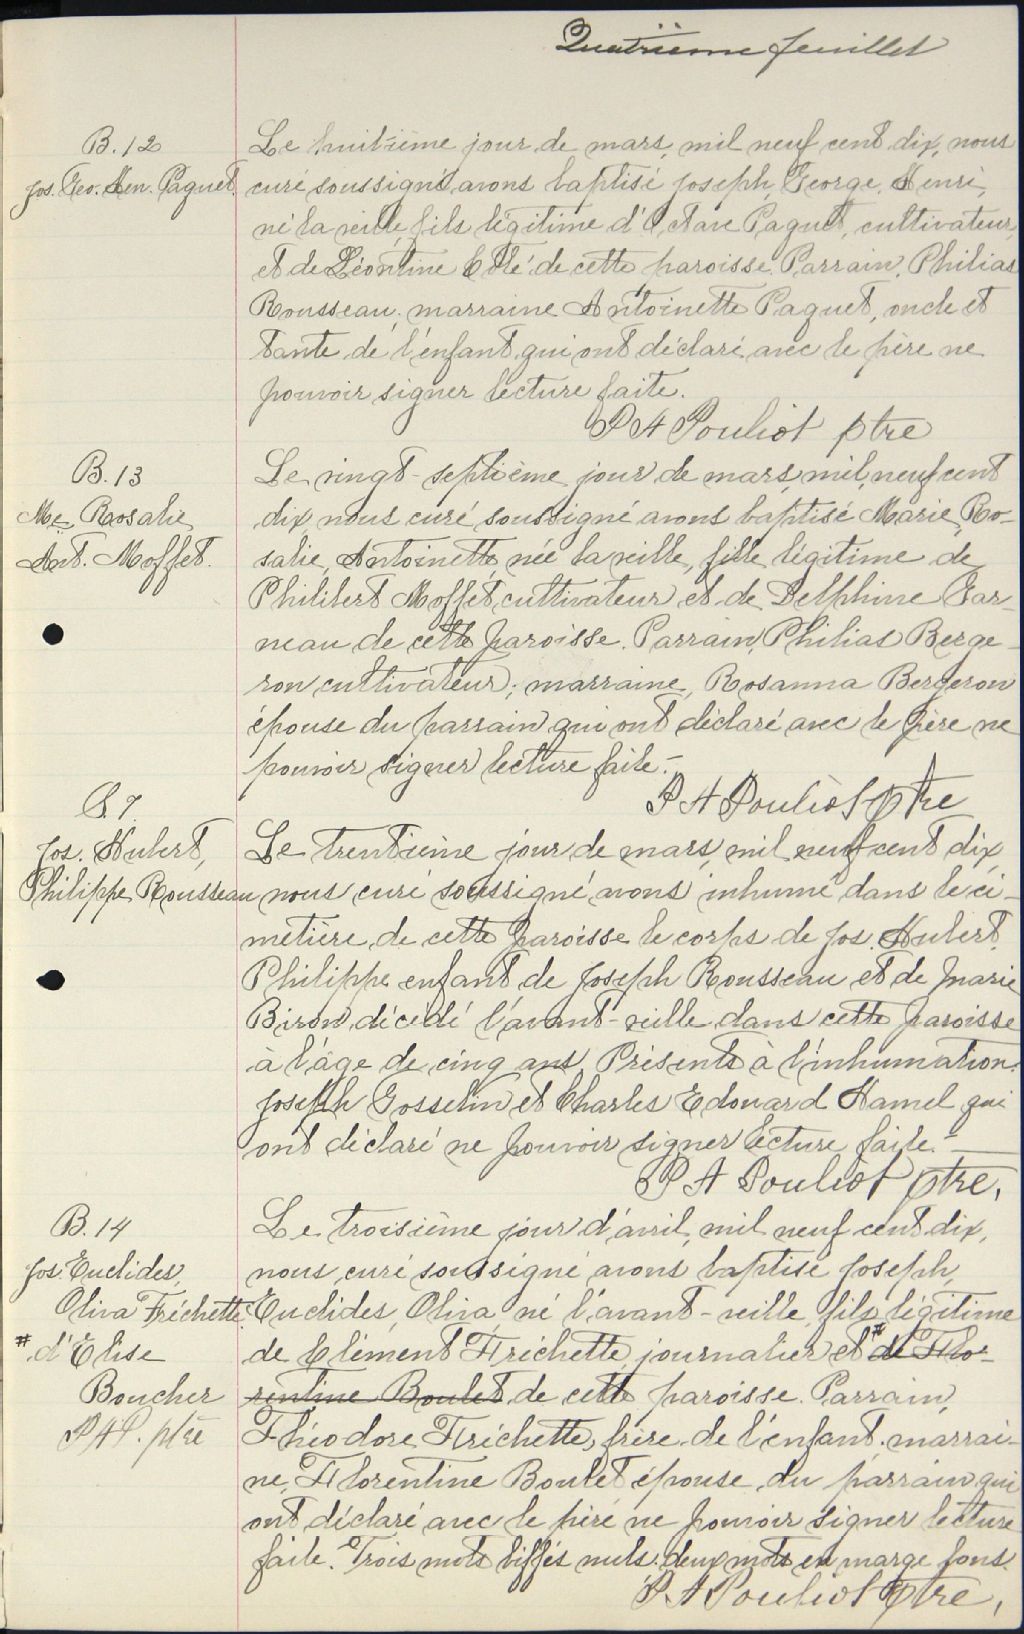 Quatrième feuillet
B. 12
Jos. Geo. Hen. Paquet.
Le huitième jour de mars, mil neuf cent dix, nous
curé soussigné avons baptisé Joseph, George, Henri,
né la veille, fils légitime d'Octave Paquet, cultivateur,
et de Léontine Côté de cette paroisse. Parrain, Philias
Rousseau; marraine Antoinette Paquet, oncle et
tante de l'enfant qui ont déclaré avec le père ne
pouvoir signer lecture faite.
P A Pouliot ptre
B. 13
Me Rosalie
Ant. Moffet.
Le vingt-septième jour de mars, mil neuf cent
dix, nous curé soussigné avons baptisé Marie, Ro-
salie, Antoinette née la veille, fille légitime de
Philibert Moffet, cultivateur et de Delphine Gar-
neau de cette paroisse. Parrain, Philias Berge-
ron cultivateur; marraine, Rosanna Bergeron
épouse du parrain qui ont déclaré avec le père ne
pouvoir signer lecture faite.-
P A Pouliot ptre
S. 7.
Jos. Hubert,
Philippe Rousseau
Le trentième jour de mars, mil neuf cent dix,
nous curé soussigné avons inhumé dans le ci-
metière de cette paroisse le corps de Jos. Hubert,
Philippe enfant de Joseph Rousseau et de Marie
Biron, décédé l'avant-veille dans cette paroisse
à l'âge de cinq ans. Présents à l'inhumation:
Joseph Gosselin et Charles Edouard Hamel qui
ont déclaré ne pouvoir signer lecture faite.-
P A Pouliot ptre.
B. 14
Jos. Euclides,
Oliva Fréchette.
# d'Elise
Boucher
P A P. ptre
Le troisième jour d'avril, mil neuf cent dix,
nous, curé soussigné avons baptisé Joseph,
Euclides, Oliva, né l'avant-veille, fils légitime
de Clément Fréchette, journalier et # de Flo-
rentine Boulet de cette paroisse. Parrain,
Théodore Fréchette, frère de l'enfant. marrai-
ne, Florentine Boulet épouse du parrain qui
ont déclaré avec le père ne pouvoir signer lecture
faite. Trois mots biffés nuls. deux mots en marge bons.
P. A Pouliot Ptre,